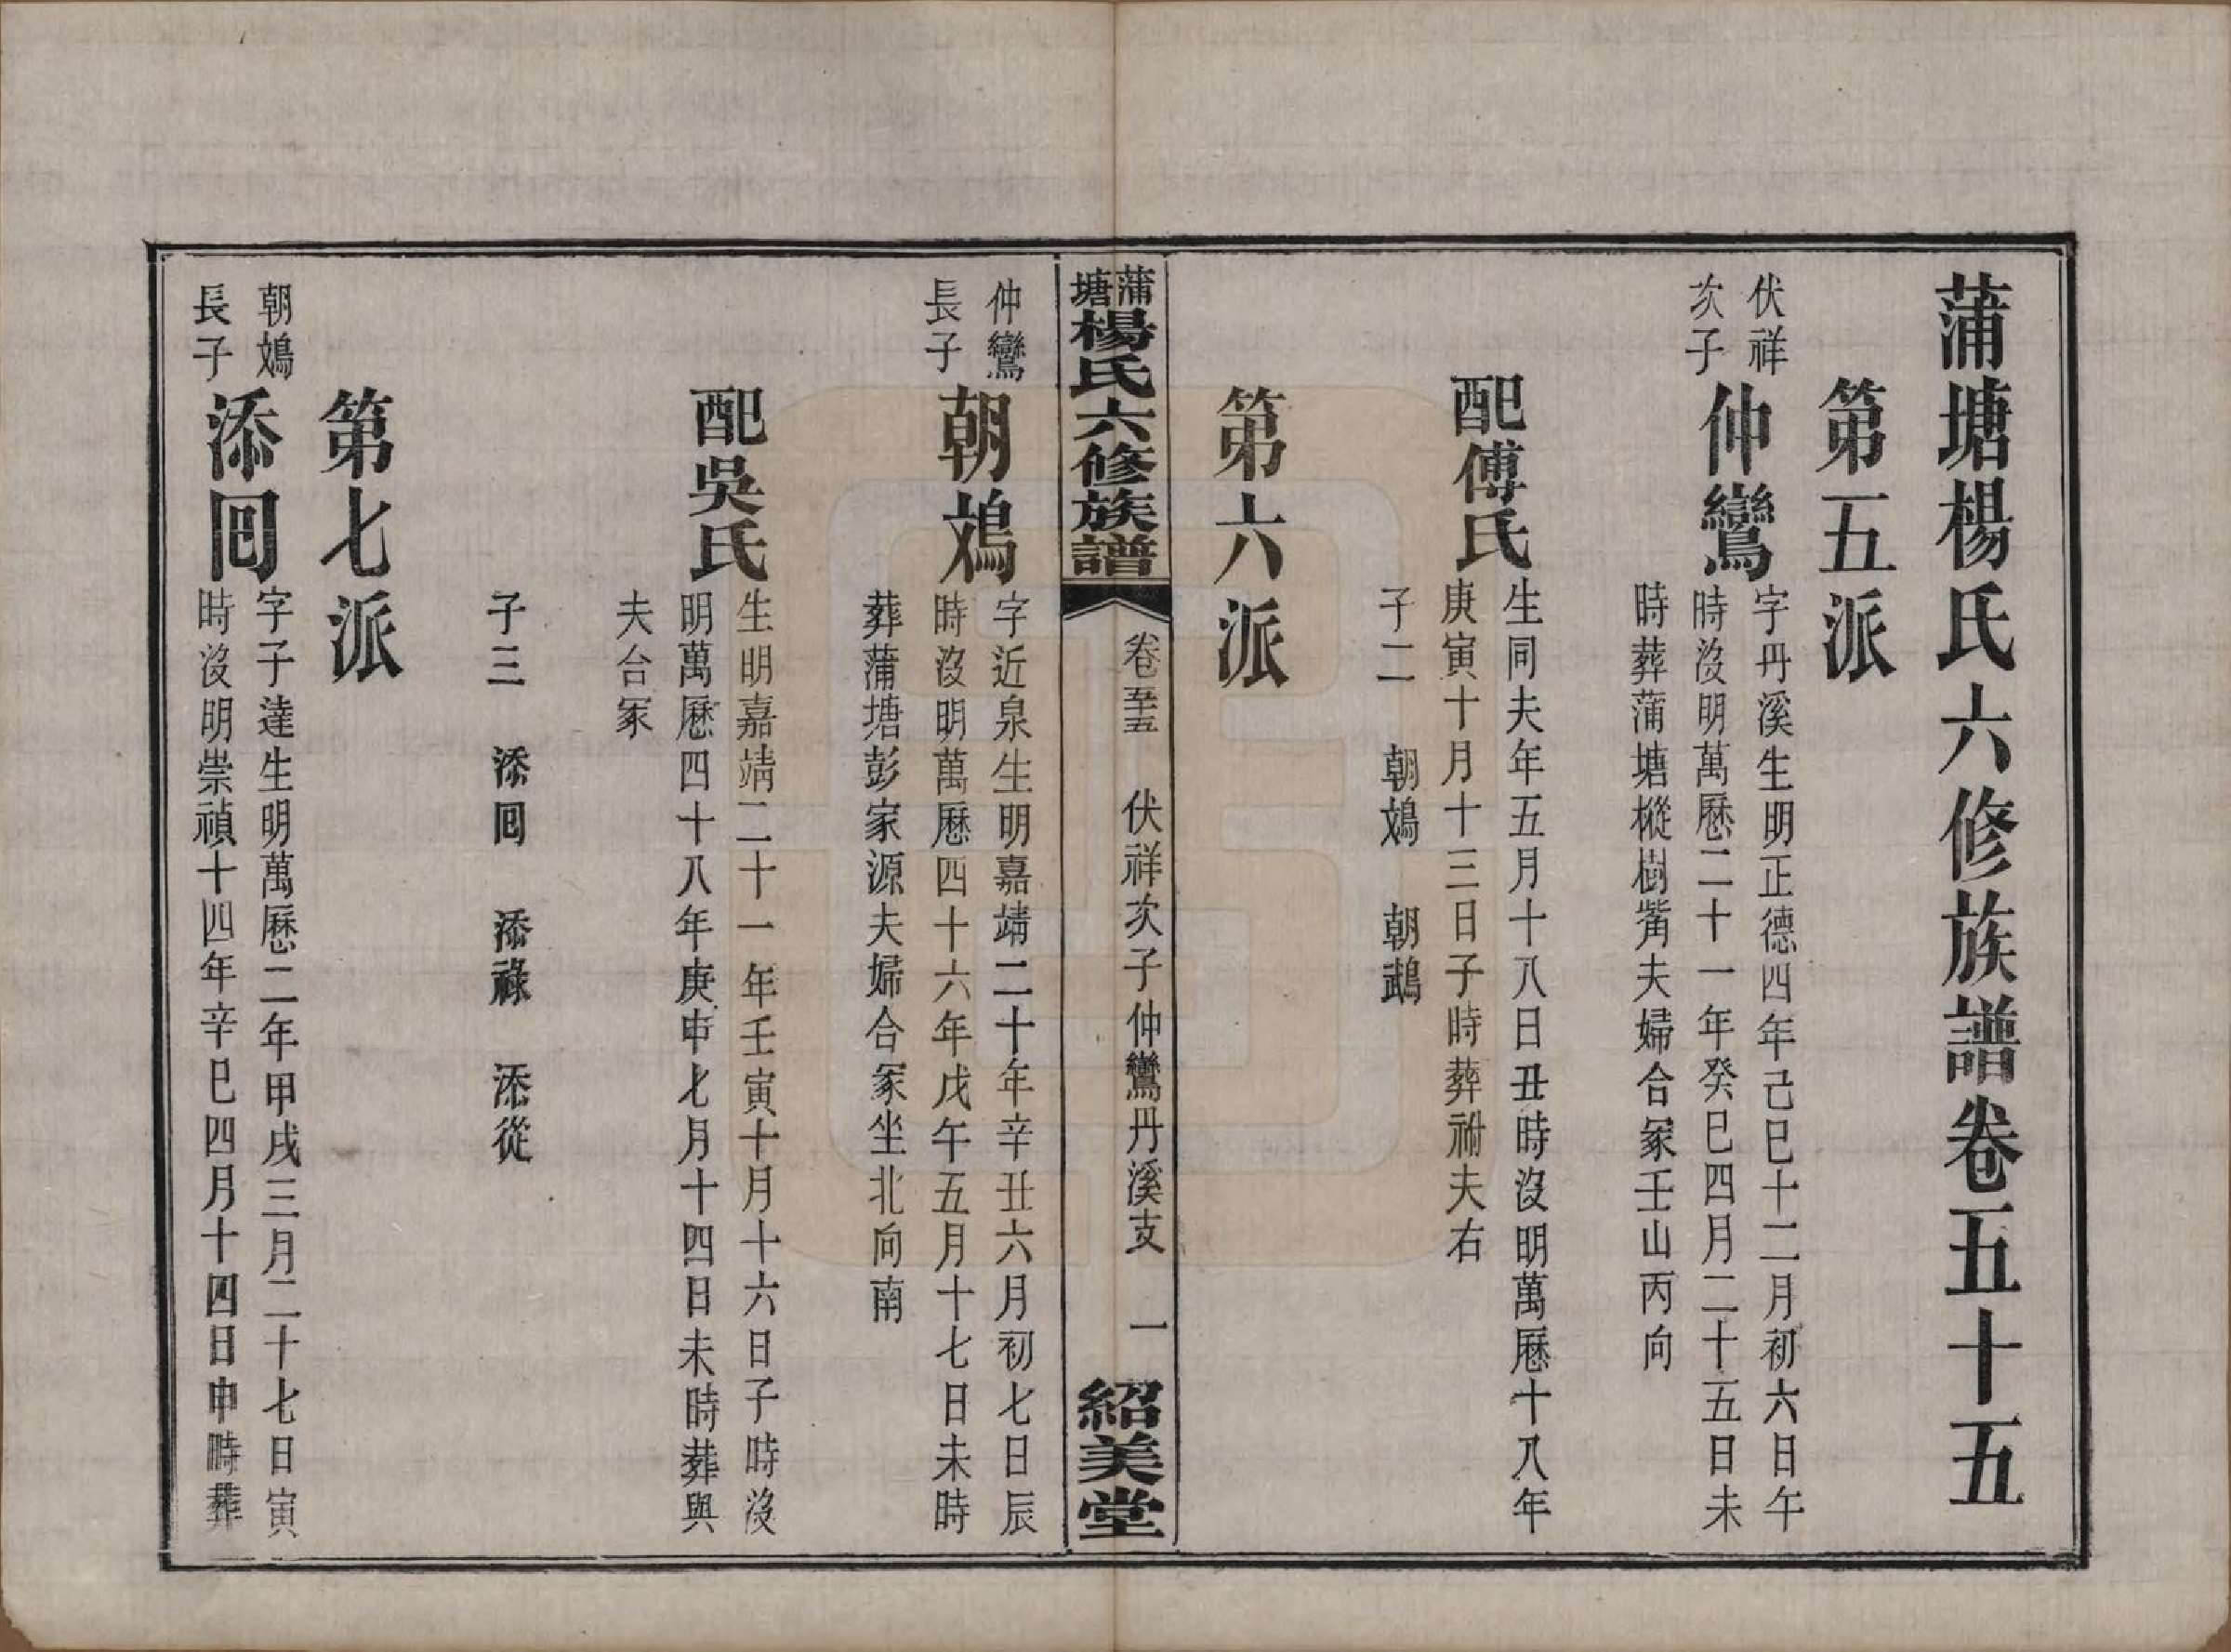 蒲塘楊氏六修族譜卷五十五
第五派
伏祥
次子
仲鸞
字丹溪生明正德四年己巳十二月初六日午
時沒明萬曆二十一年癸巳四月二十五日未
時葬蒲塘樅樹觜夫婦合冢壬山丙向
配傅氏
生同夫年五月十八日丑時沒明萬曆十八年
庚寅十月十三日子時葬祔夫右
子二 朝鴆 朝鵡
第六派
蒲塘楊氏六修族譜
卷五十五 伏祥次子仲鸞丹溪支 一
紹美堂
仲鸞
長子
朝鴆
字近泉生明嘉靖二十年辛丑六月初七日辰
時沒明萬曆四十六年戊午五月十七日未時
葬蒲塘彭家源夫婦合冢坐北向南
配吳氏
生明嘉靖二十一年壬寅十月十六日子時沒
明萬曆四十八年庚申七月十四日未時葬與
夫合冢
子三 添囘 添祿 添從
第七派
朝鴆
長子
添囘
字子達生明萬曆二年甲戌三月二十七日寅
時沒明崇禎十四年辛巳四月十四日申時葬